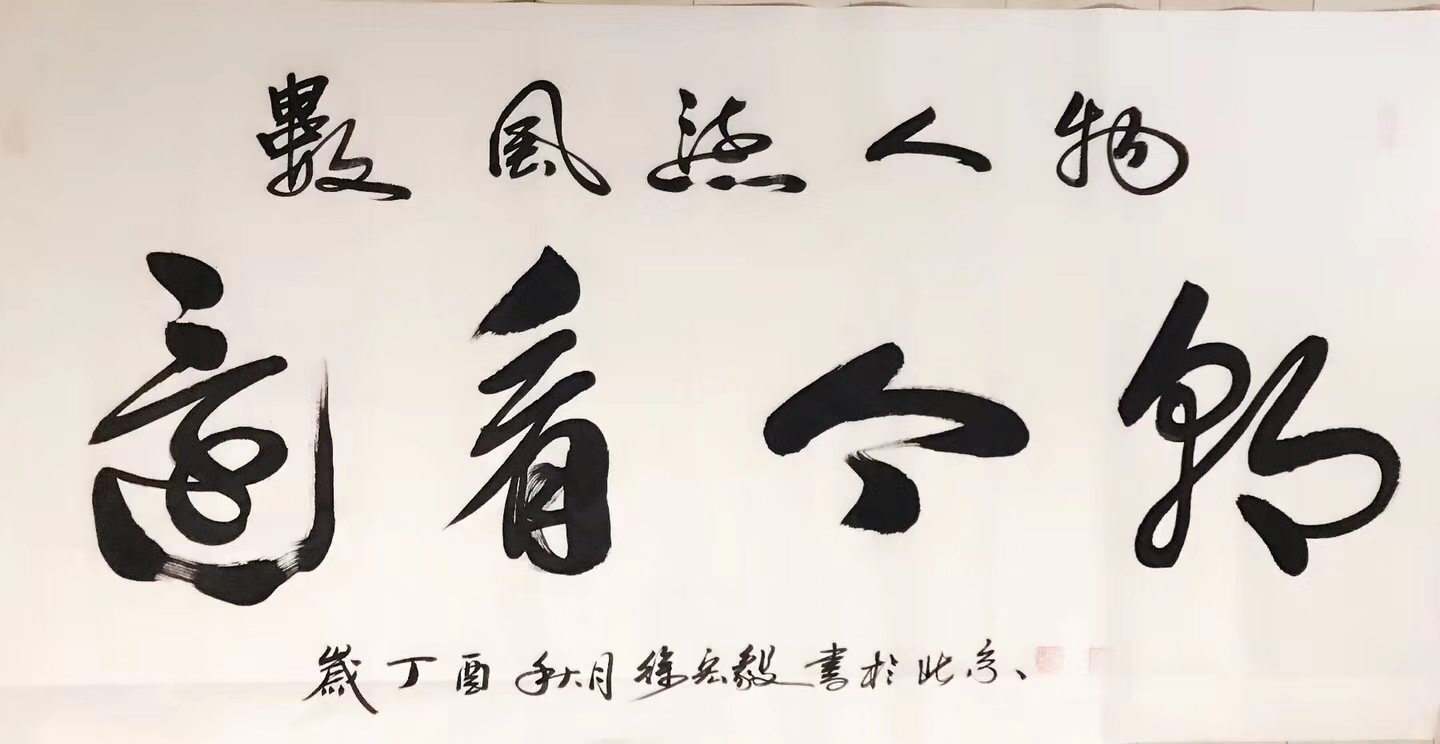 數風流人物
還看今朝
歲丁酉秋月徐宏毅書於北京